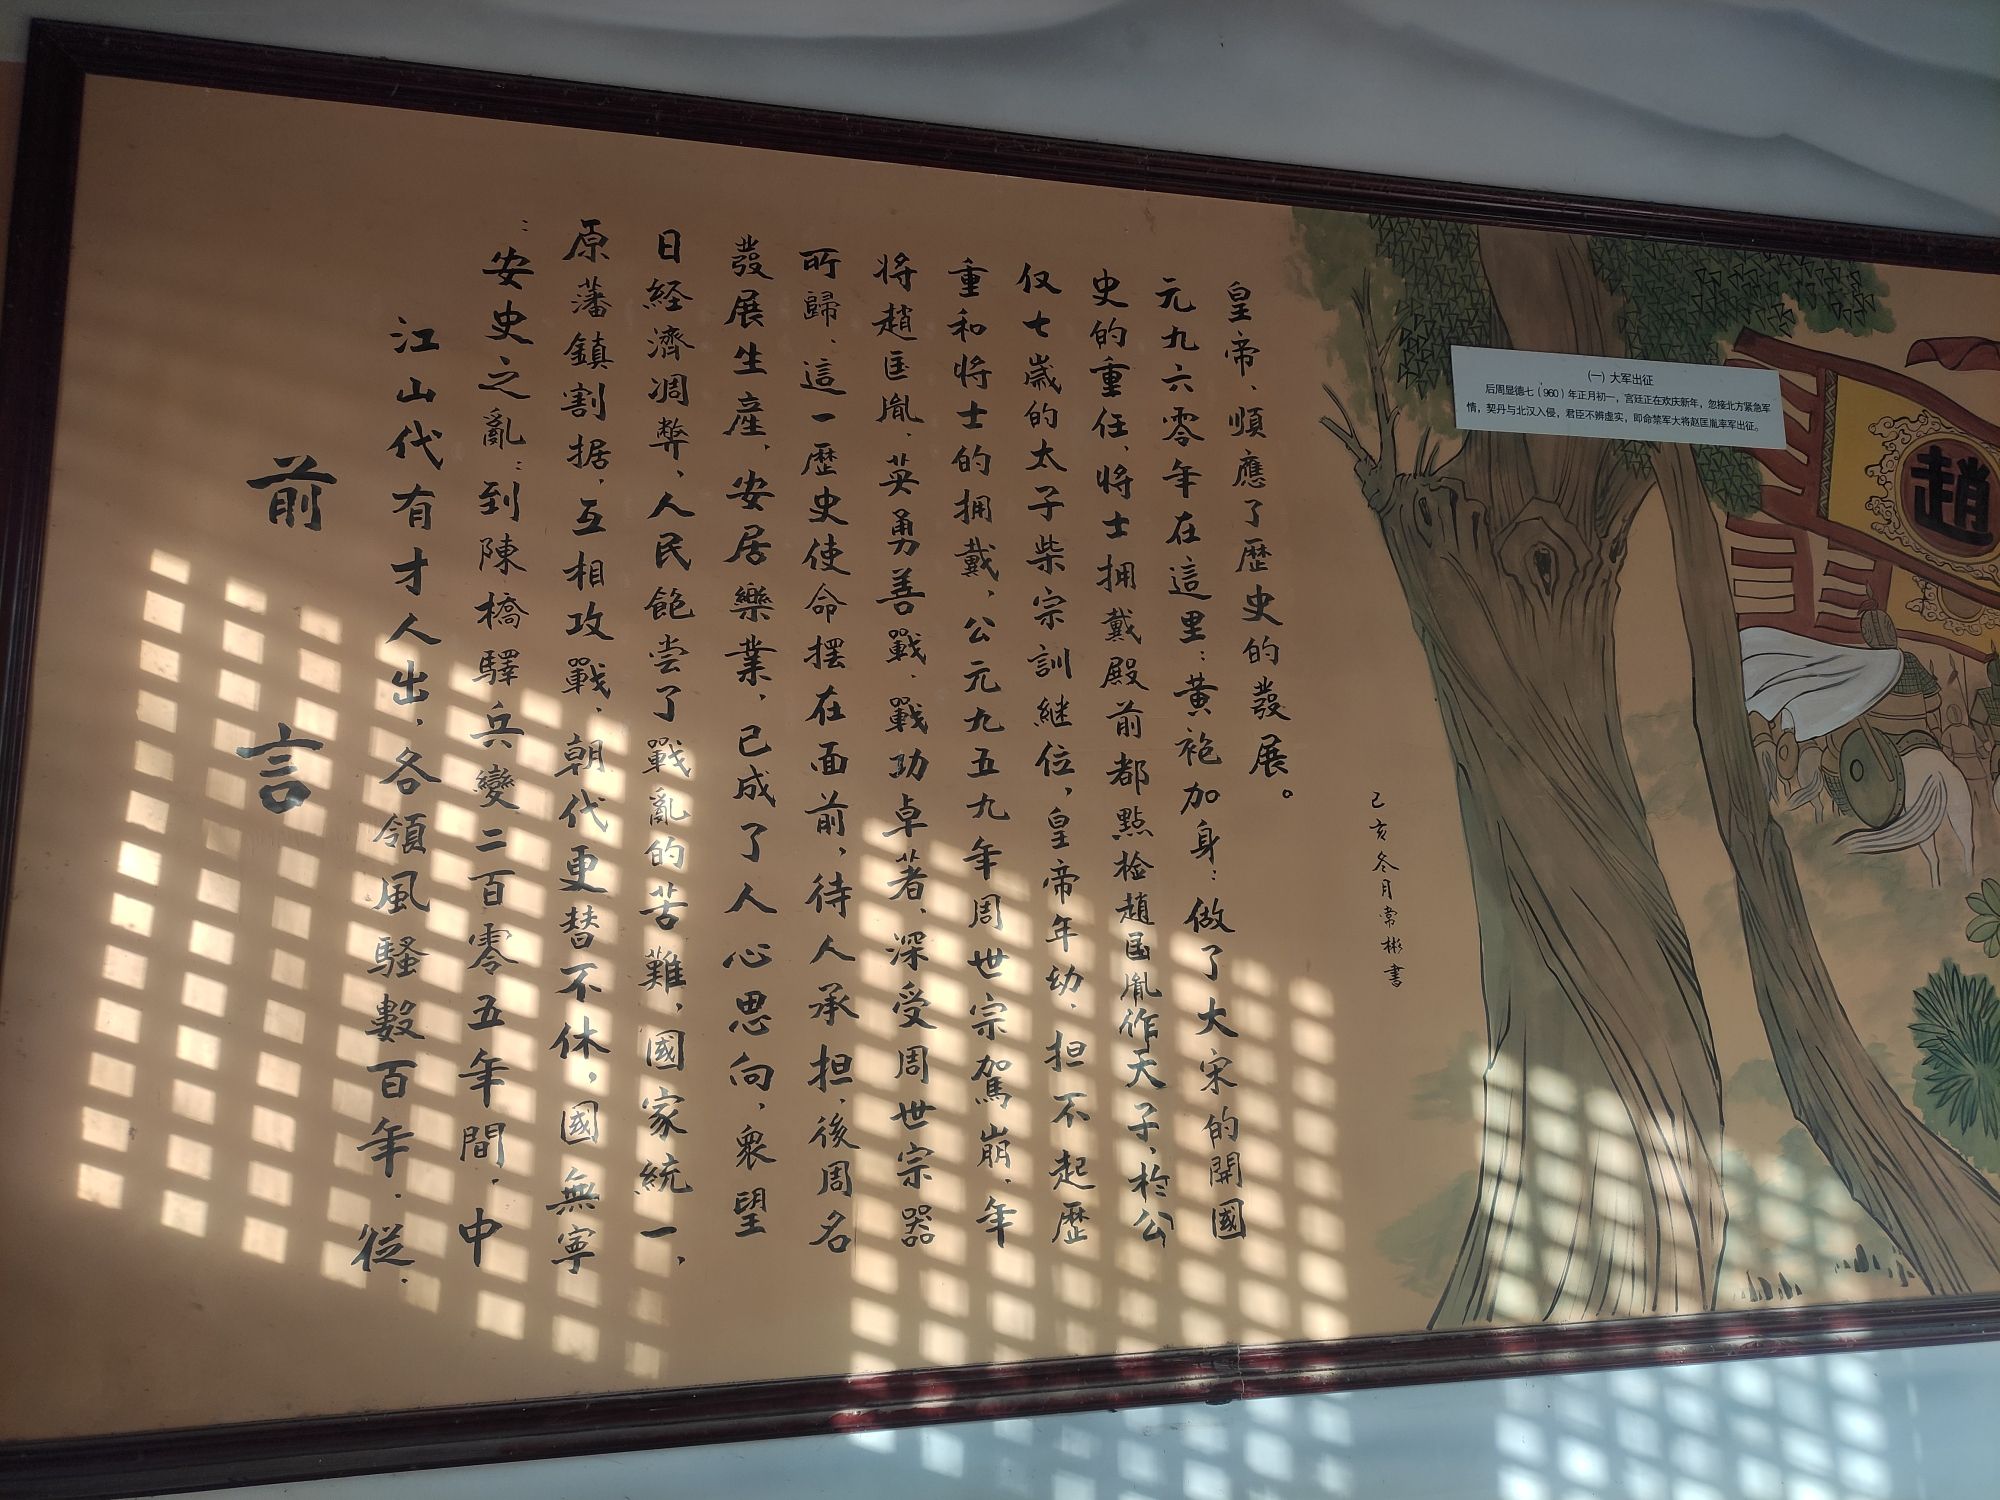 前言
江山代有才人出，各領風騷數百年．從．
：安史之亂：到陳橋驛兵變二百零五年間．中
原藩鎮割据，互相攻戰．朝代更替不休，國無寧
日经濟凋弊，人民飽尝了戰亂的苦難，國家統一，
發展生産，安居樂業，已成了人心思向，衆望
所歸．這一歷史使命摆在面前，待人承担．後周名
将趙匡胤．英勇善戰．戰功卓著．深受周世宗器
重和将士的拥戴，公元九五九年周世宗駕崩．年
仅七歲的太子柴宗訓继位，皇帝年幼．担不起歷
史的重任．将士拥戴殿前都點检趙匡胤作天子，於公
元九六零年在這里：黄袍加身：做了大宋的開國
皇帝．順應了歷史的發展。
己亥冬月常彬書
（一）大军出征
后周显德七（960）年正月初一，宫廷正在欢庆新年，忽接北方紧急军
情，契丹与北汉入侵，君臣不辨虚实，即命禁军大将赵匡胤率军出征。
趙